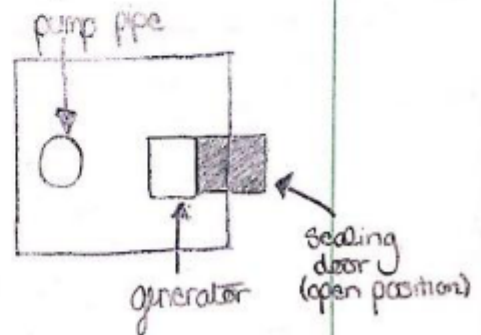 pump pipe
generator
sealing
door
(open position)